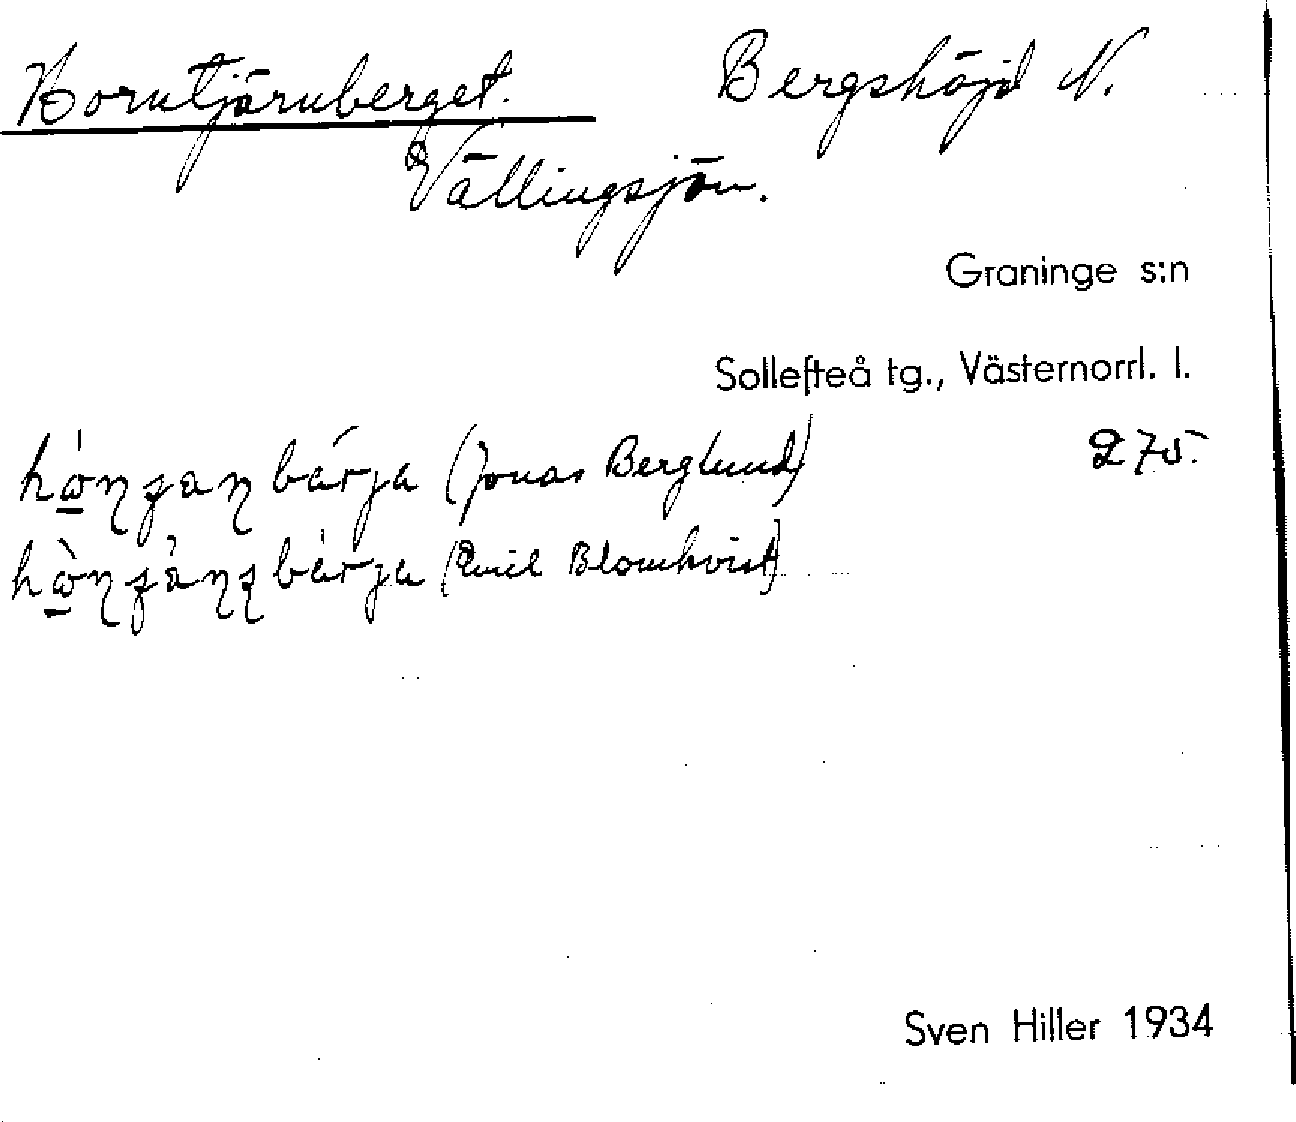 Horntjärnberget. Bergshöjd N.
Vällingsjön.
Graninge s:n
Sollefteå tg., Västernorrl. l.
(Jonas Berglund) 275.
(Emil Blomkvist)
Sven Hiller 1934